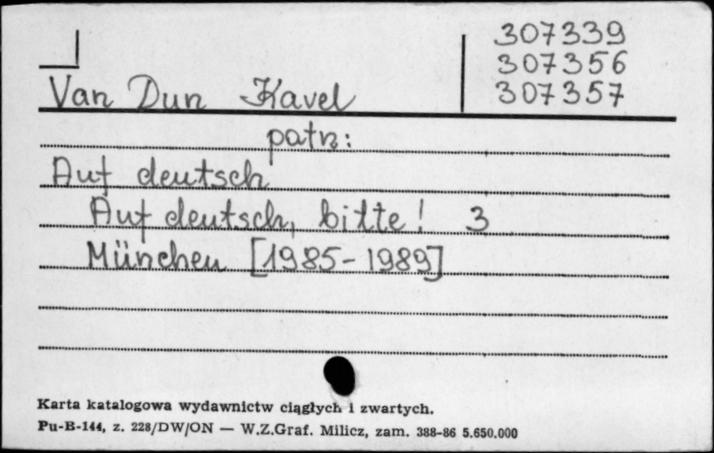 307339
307356
307357
Van Dun Kavel
patrz:
Auf deutsch
Auf deutsch, bitte! 3
München [1985-1989]
Karta katalogowa wydawnictw ciągłych i zwartych.
Pu-B-144, z. 228/DW/ON — W.Z.Graf. Milicz, zam. 388-86 5.650.000